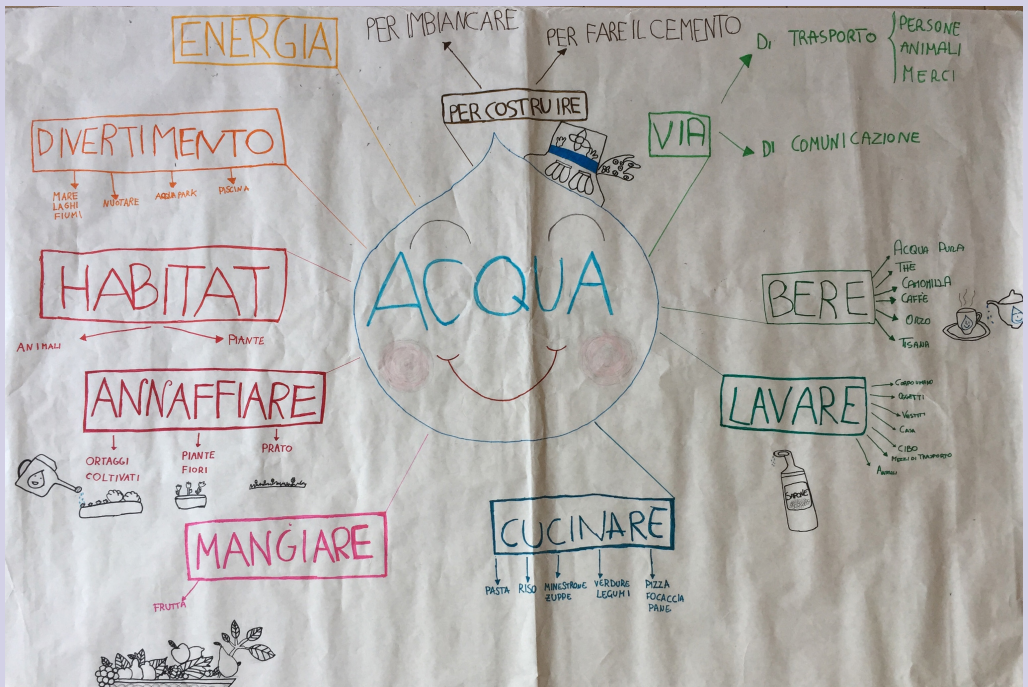 ENERGIA
PER IMBIANCARE
PER FARE IL CEMENTO
PER COSTRUIRE
VIA
DI TRASPORTO
PERSONE
ANIMALI
MERCI
DI COMUNICAZIONE
DIVERTIMENTO
MARE
LAGHI
FIUMI
NUOTARE
ACQUAPARK
PISCINA
ACQUA
HABITAT
ANIMALI
PIANTE
BERE
ACQUA PURA
THE
CAMOMILLA
CAFFE
ORZO
TISANA
ANNAFFIARE
ORTAGGI
COLTIVATI
PIANTE
FIORI
PRATO
LAVARE
CORPO UMANO
OGGETTI
VESTITI
CASA
CIBO
MEZZI DI TRASPORTO
ANIMALI
SAPONE
MANGIARE
FRUTTA
CUCINARE
PASTA
RISO
MINESTRONE
ZUPPE
VERDURE
LEGUMI
PIZZA
FOCACCIA
PANE